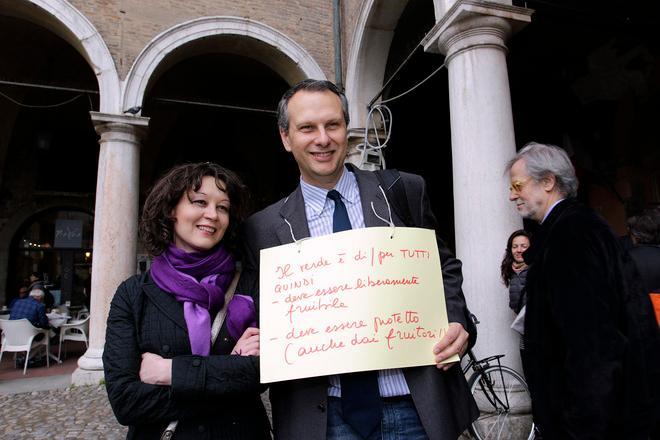 Il verde è di/per TUTTI
QUINDI
- deve essere liberamente
fruibile
- deve essere protetto
(anche dai fruitori!)